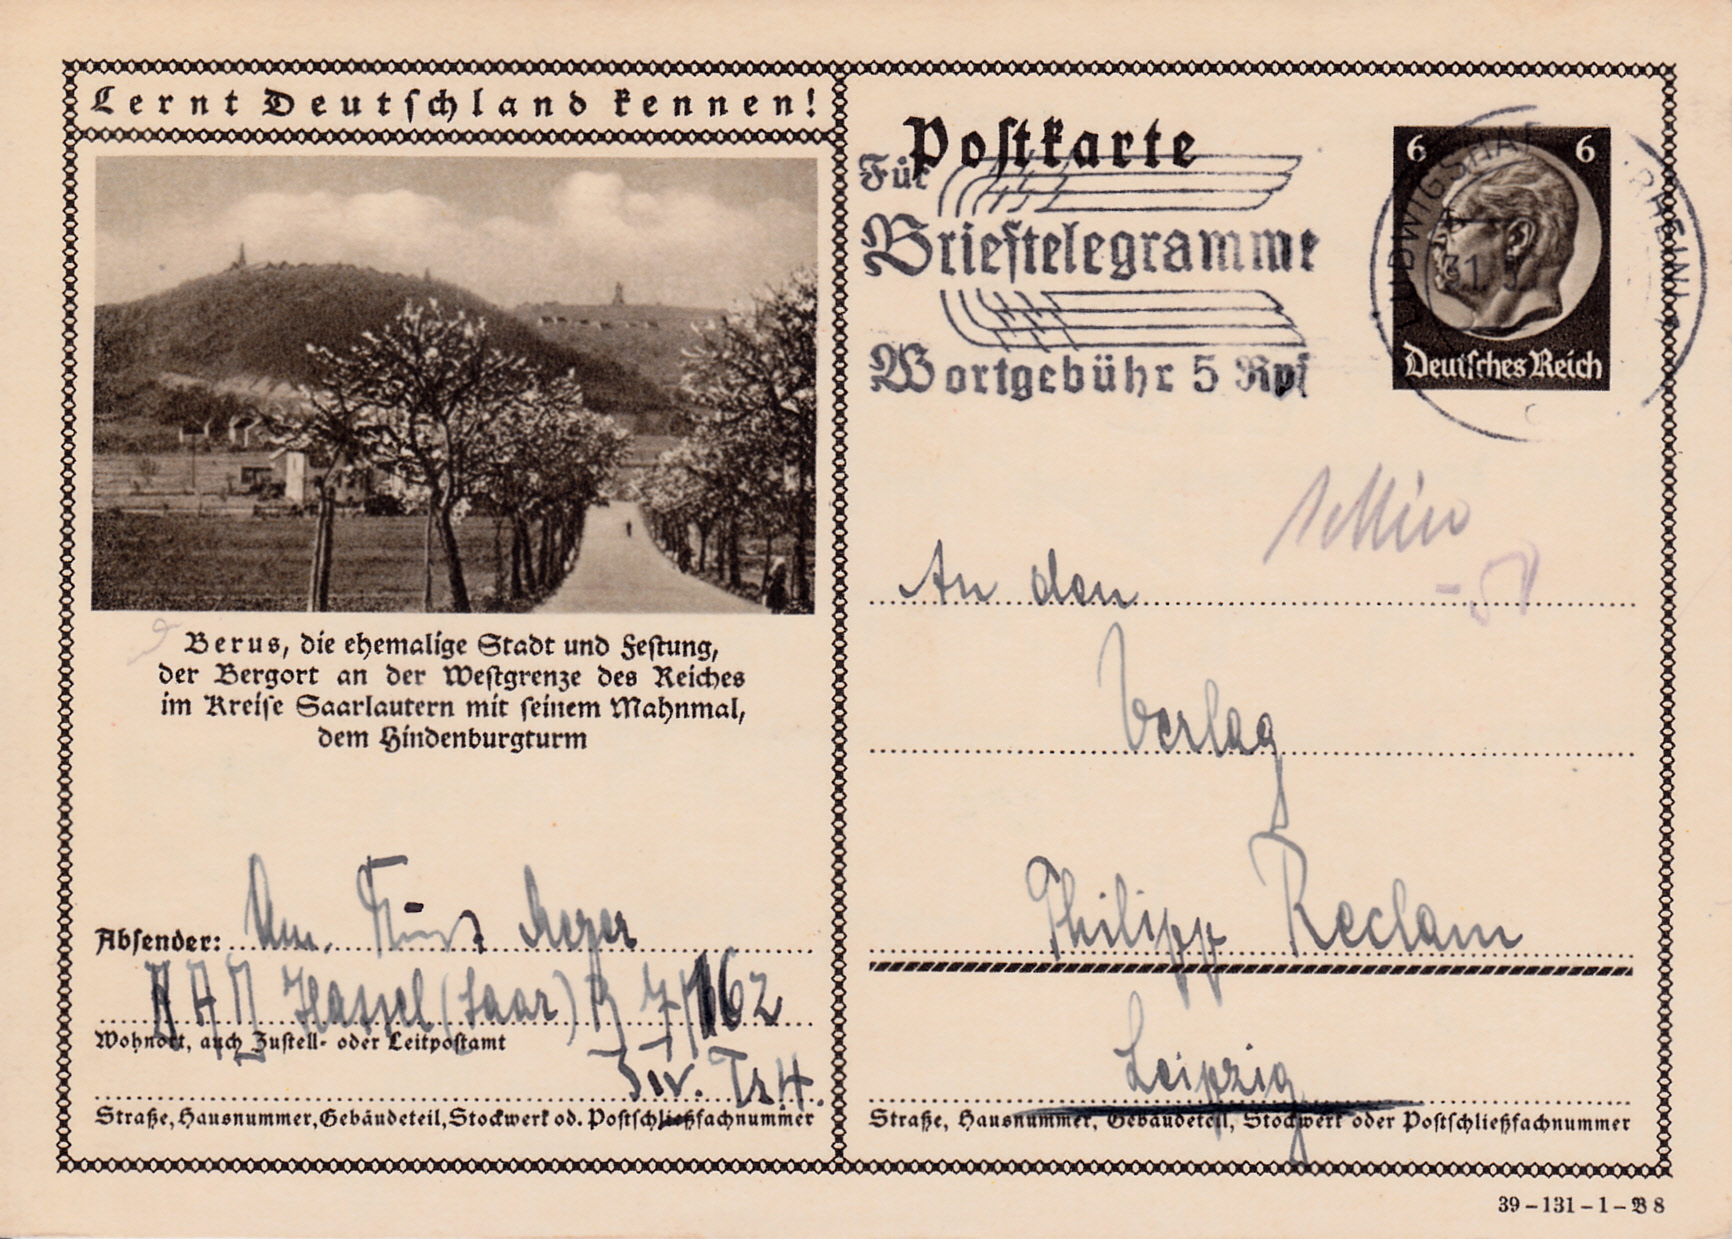 Lernt Deutschland kennen!
Berus, die ehemalige Stadt und Festung,
der Bergort an der Westgrenze des Reiches
im Kreise Saarlautern mit seinem Mahnmal,
dem Hindenburgturm
Absender:
Hassel (Saar)
Wohnort, auch Zustell- oder Leitpostamt
Straße, Hausnummer, Gebäudeteil, Stockwerk od. Postschließfachnummer
Postkarte
Für
Brieftelegramme
Wortgebühr 5 Rpf
6 6
Deutsches Reich
31.
An den
Verlag
Philipp Reclam
Leipzig
Straße, Hausnummer, Gebäudeteil, Stockwerk oder Postschließfachnummer
39-131-1-B 8